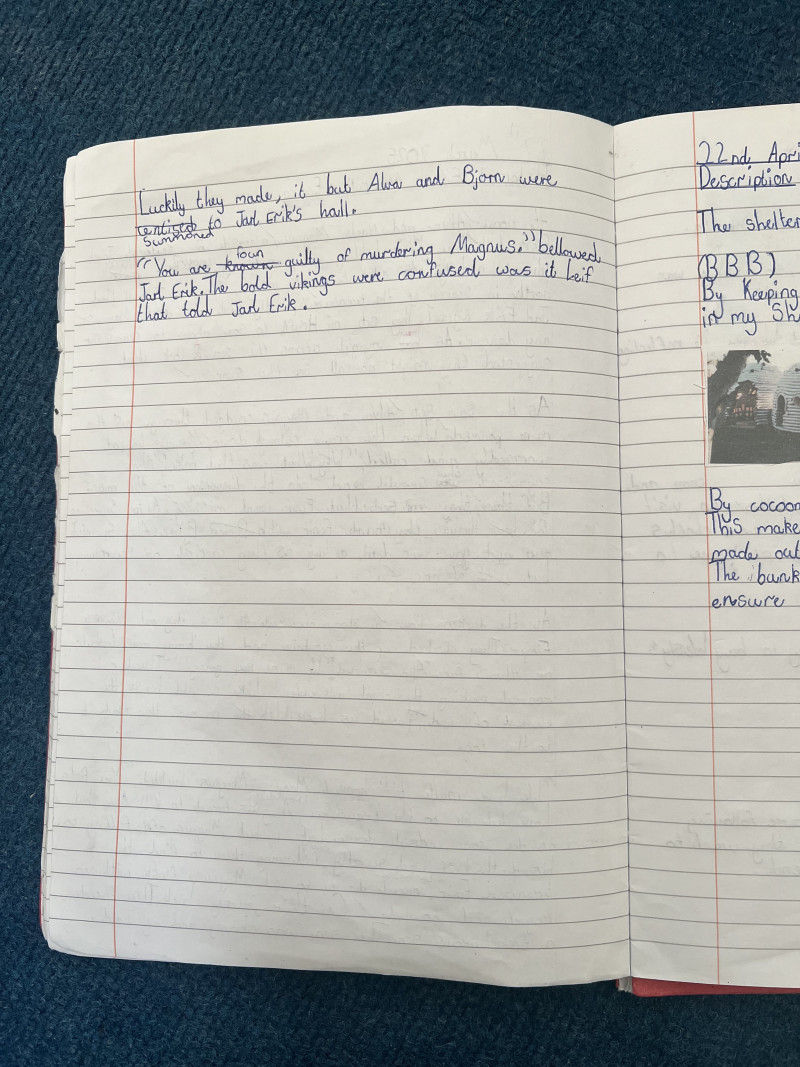 Luckily they made, it but Alva and Bjorn were
to Jarl Erik's hall.
summoned
"You are known guilty of murdering Magnus." bellowed
foun
Jarl Erik. The bold vikings were confused was it Leif
that told Jarl Erik.
22nd Apri
Description
The shelter
(BBB)
By Keeping
in my Sh
By cocoon
This make
made out
The bunk
ensure